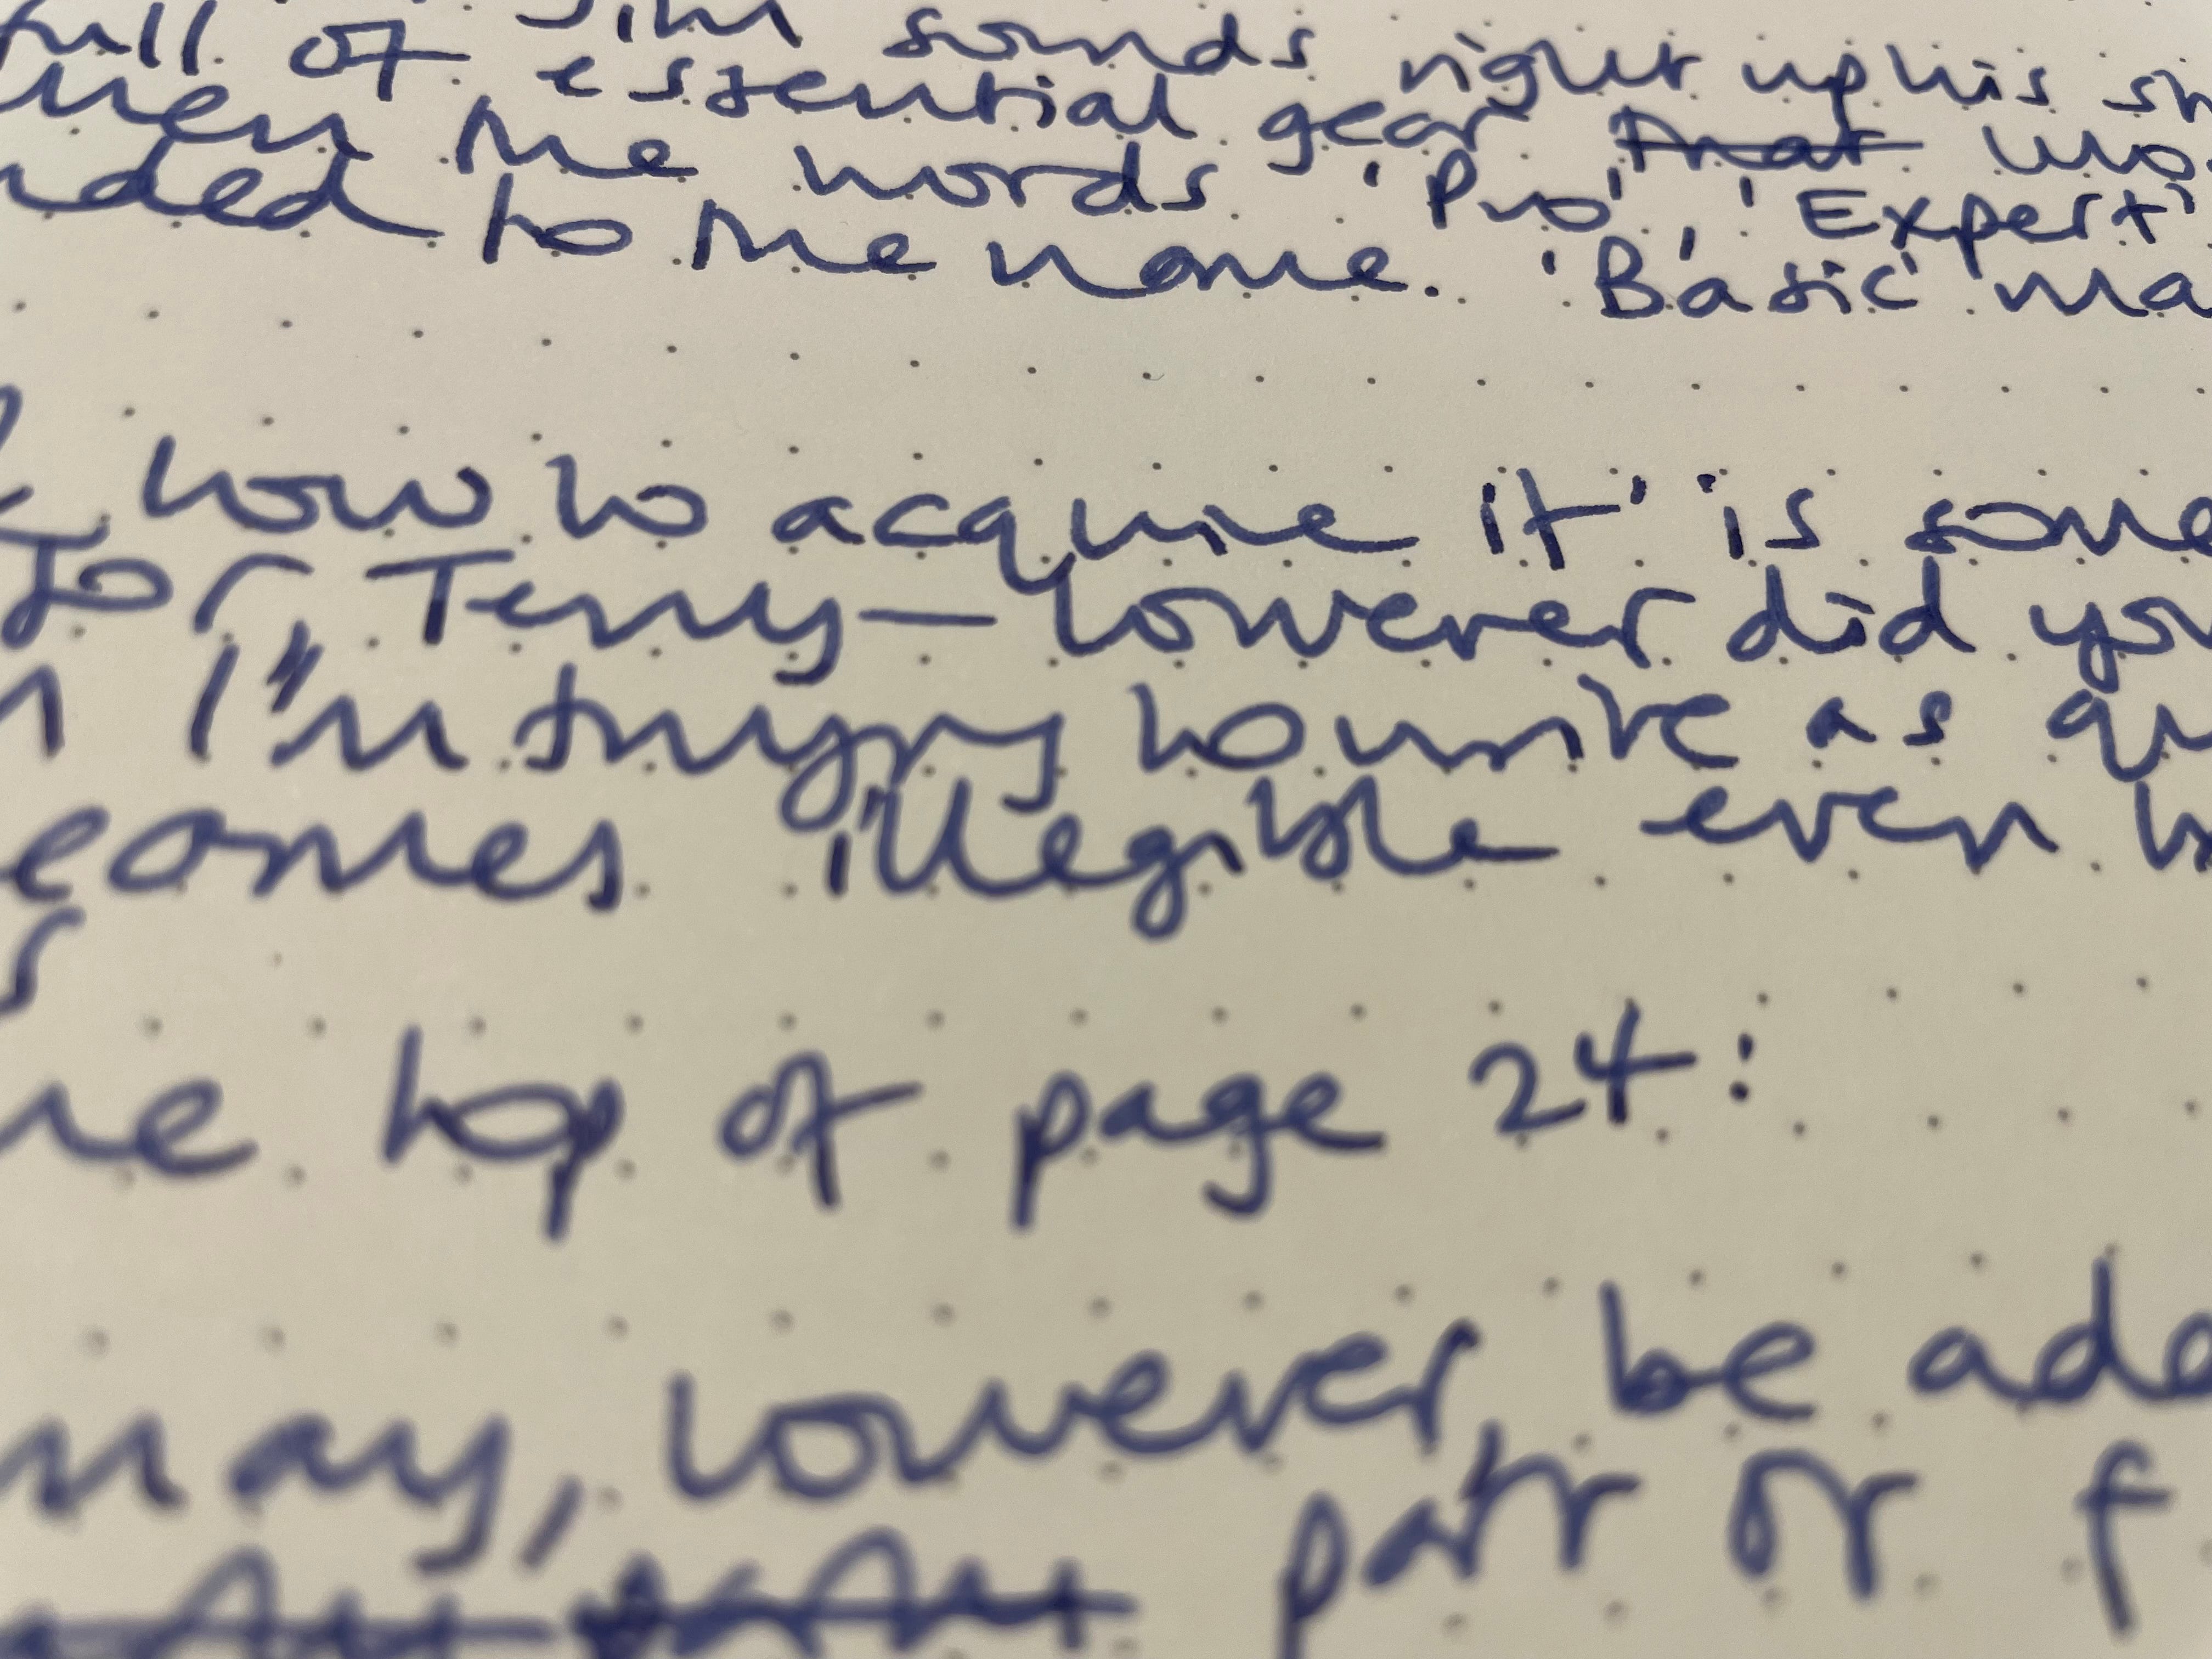 Jim sounds right up his sh
full of essential gear that wo
when the words 'Pro', 'Expert'
added to the name. 'Basic' ma
how to acquire it' is some
for, Terry — however did you
I'm trying to write as qu
ecomes illegible even to
the top of page 24:
may, however, be ade
part or f